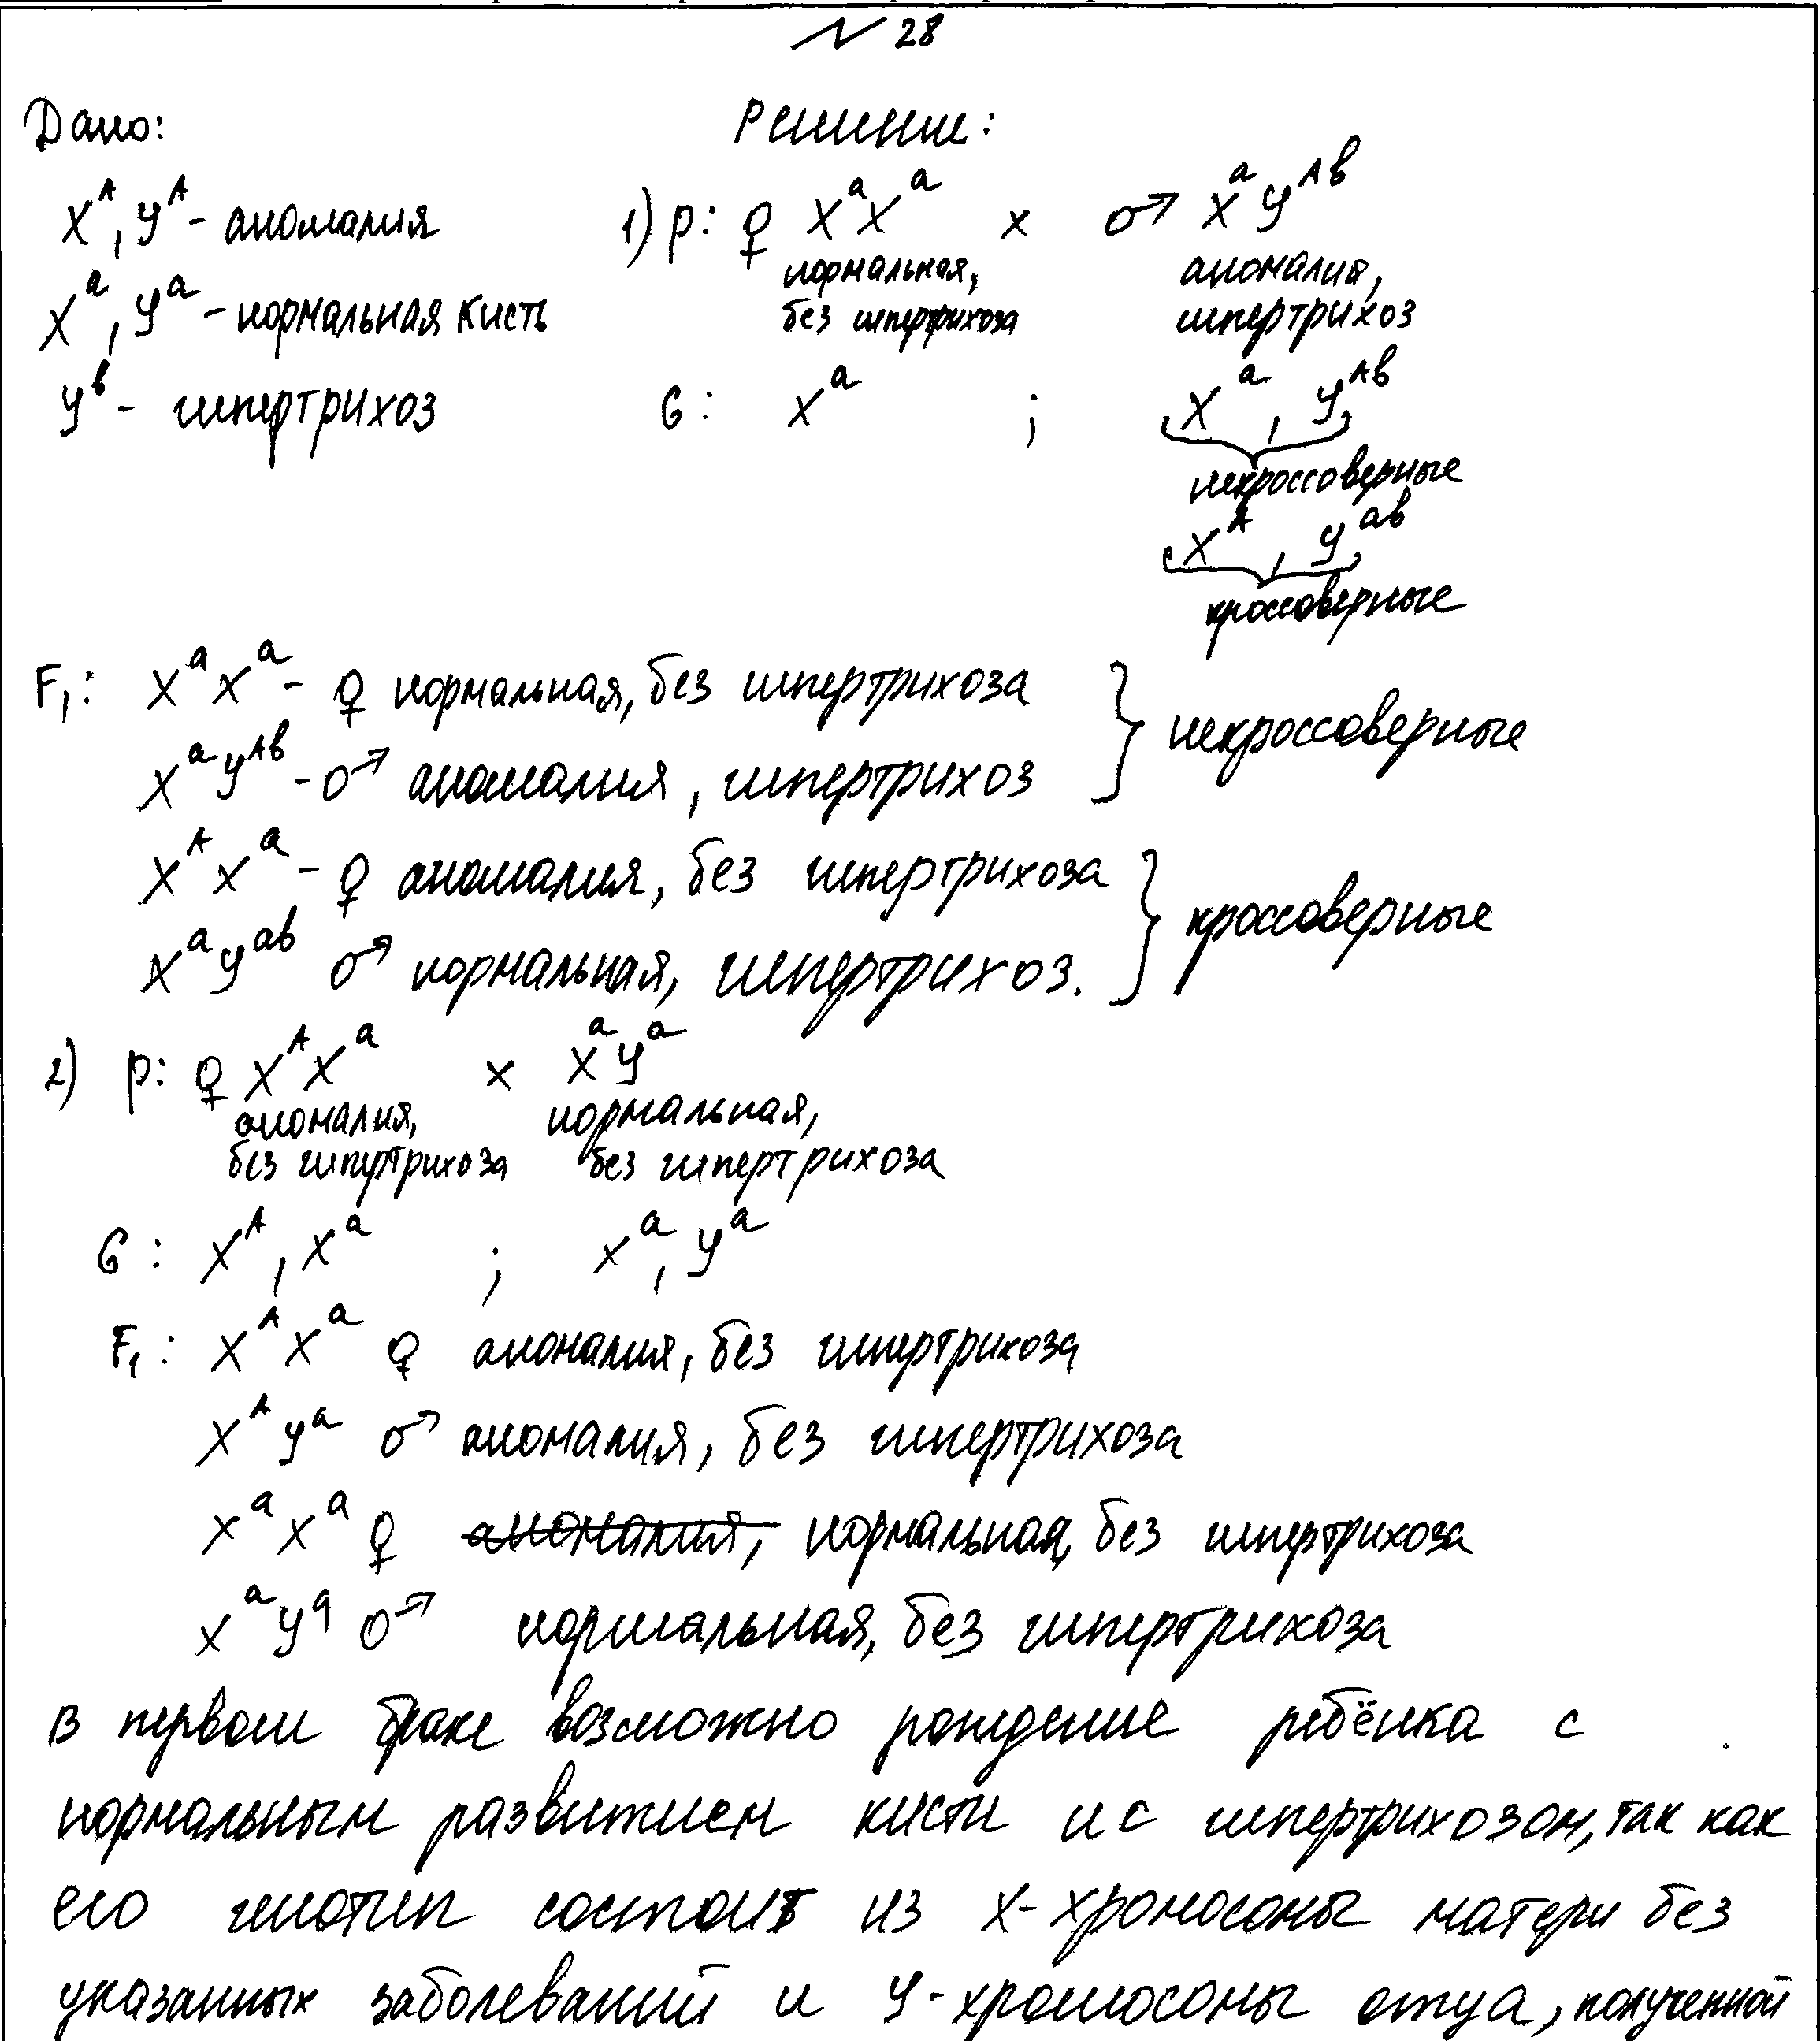 № 28
Дано: Решение:
X^A, Y^A - аномалия
1) P: ♀ X^a X^a x ♂ X^a Y^Ab
нормальная, аномалия,
X^a, Y^a - нормальная кисть
без гипертрихоза гипертрихоз
Y^b - гипертрихоз
G: X^a ; X^a, Y^Ab
некроссоверные
X^A, Y^ab
кроссоверные
F1: X^a X^a - ♀ нормальная, без гипертрихоза
X^a Y^Ab - ♂ аномалия, гипертрихоз
некроссоверные
X^A X^a - ♀ аномалия, без гипертрихоза
X^a Y^ab ♂ нормальная, гипертрихоз.
кроссоверные
2) P: ♀ X^A X^a x X^a Y^a
аномалия, нормальная,
без гипертрихоза без гипертрихоза
G: X^A, X^a ; X^a, Y^a
F1: X^A X^a ♀ аномалия, без гипертрихоза
X^A Y^a ♂ аномалия, без гипертрихоза
X^a X^a ♀ аномалия, нормальная, без гипертрихоза
X^a Y^a ♂ нормальная, без гипертрихоза
В первом браке возможно рождение ребёнка с
нормальным развитием кисти и с гипертрихозом, так как
его генотип состоит из X-хромосомы матери без
указанных заболеваний и Y-хромосомы отца, полученной